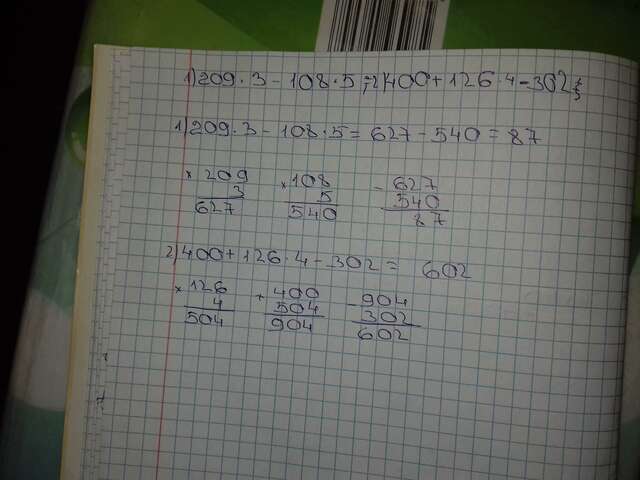 1) 209·3 - 108·5; 2) 400+126·4-302;
1) 209·3 - 108·5 = 627 - 540 = 87
× 209 × 108 - 627
3 5 540
627 540 87
2) 400+126·4-302 = 602
× 126 + 400 - 904
4 504 302
504 904 602